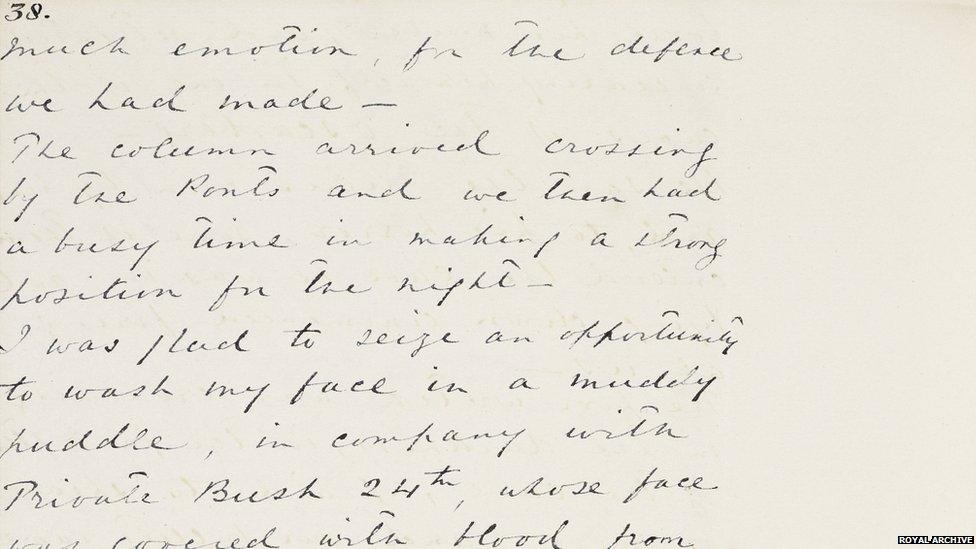 38.
much emotion, for the defence
we had made —
The column arrived crossing
by the Ponts and we then had
a busy time in making a strong
position for the night —
I was glad to seize an opportunity
to wash my face in a muddy
puddle, in company with
Private Bush 24th, whose face
was covered with blood from
ROYAL ARCHIVE